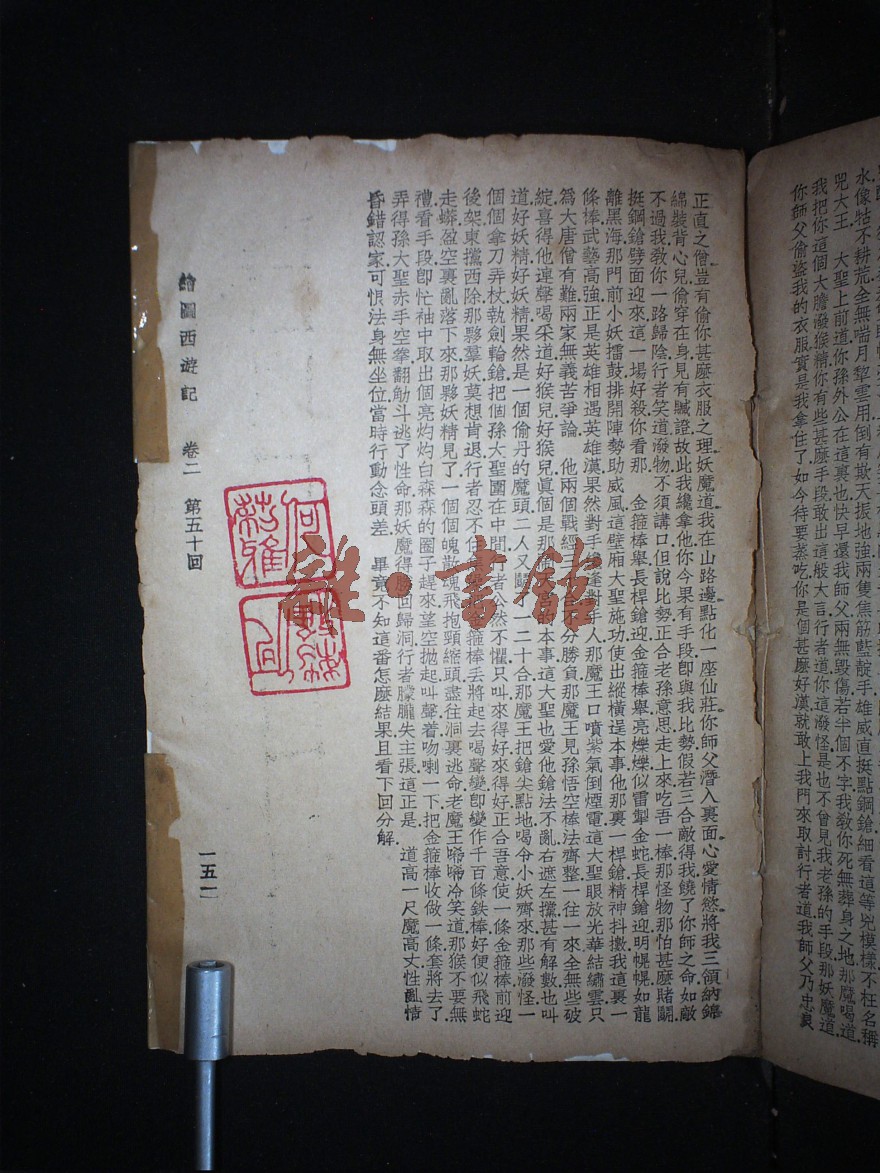 水像牯不耕荒全無喘月犂雲用倒有欺天振地強兩隻焦筋藍靛手雄威直挺點鋼鎗細看這等兇模樣不枉名稱
兕大王　大聖上前道你孫外公在這裏也快早還我師父兩無毀傷若半個不字我教你死無葬身之地那魔喝道
我把你這個大膽潑猴精你有些甚麽手段敢出這般大言行者道你這潑怪是也不曾見我老孫的手段那妖魔道
你師父偷盜我的衣服實是我拿住了如今待要蒸吃你是個甚麽好漢就敢上我門來取討行者道我師父乃忠良
正直之僧豈有偷你甚麽衣服之理妖魔道我在山路邊點化一座仙莊你師父潛入裏面心愛情慾將我三領納錦
綿裝背心兒偷穿在身見有贓證故此我纔拿他你今果有手段卽與我比勢假若三合敵得我饒了你師之命如敵
不過我教你一路歸陰行者笑道潑物不須講口但說比勢正合老孫意思走上來吃吾一棒那怪物那怕甚麽賭鬭
挺鋼鎗劈面迎來這一場好殺你看那　金箍棒舉長桿鎗迎金箍棒舉亮爍爍似雷掣金蛇長桿鎗迎明幌幌如龍
離黑海那門前小妖擂鼓排開陣勢助威風這壁厢大聖施功使出縱橫逞本事他那裏一桿鎗精神抖擻我這裏一
條棒武藝高強正是英雄相遇英雄漢果然對手逢對手人那魔王口噴紫氣倒煙電這大聖眼放光華結繡雲只
爲大唐僧有難兩家無義苦爭論　他兩個戰經不分勝負那魔王見孫悟空棒法齊整一往一來全無些破
綻喜得他連聲喝采道好猴兒好猴兒眞個是那本事這大聖也愛他鎗法不亂右遮左攩甚有解數也叫
道好妖精好妖精果然是一個偷丹的魔頭二人又鬭一二十合那魔王把鎗尖點地喝令小妖齊來那些潑怪一
個個拿刀弄杖執劍輪鎗把個孫大聖圍在中間行者公然不懼只叫來得好來得好正合吾意使一條金箍棒前迎
後架東攩西除那夥羣妖莫想肯退行者忍不住箍棒丢將起去喝聲變卽變作千百條鉄棒好便似飛蛇
走蟒盈空裏亂落下來那夥妖精見了一個個魄散魂飛抱頭縮頸盡往洞裏逃命老魔王唏唏冷笑道那猴不要無
禮看手段卽忙袖中取出個亮灼灼白森森的圈子趕來望空抛起叫聲着吻喇一下把金箍棒收做一條套將去了
弄得孫大聖赤手空拳翻觔斗逃了性命那妖魔得勝回歸洞行者朦朧失主張這正是　道高一尺魔高丈性亂情
昏錯認家可恨法身無坐位當時行動念頭差　畢竟不知這番怎麽結果且看下回分解
繪圖西遊記　卷二　第五十回　一五一
雜·書館